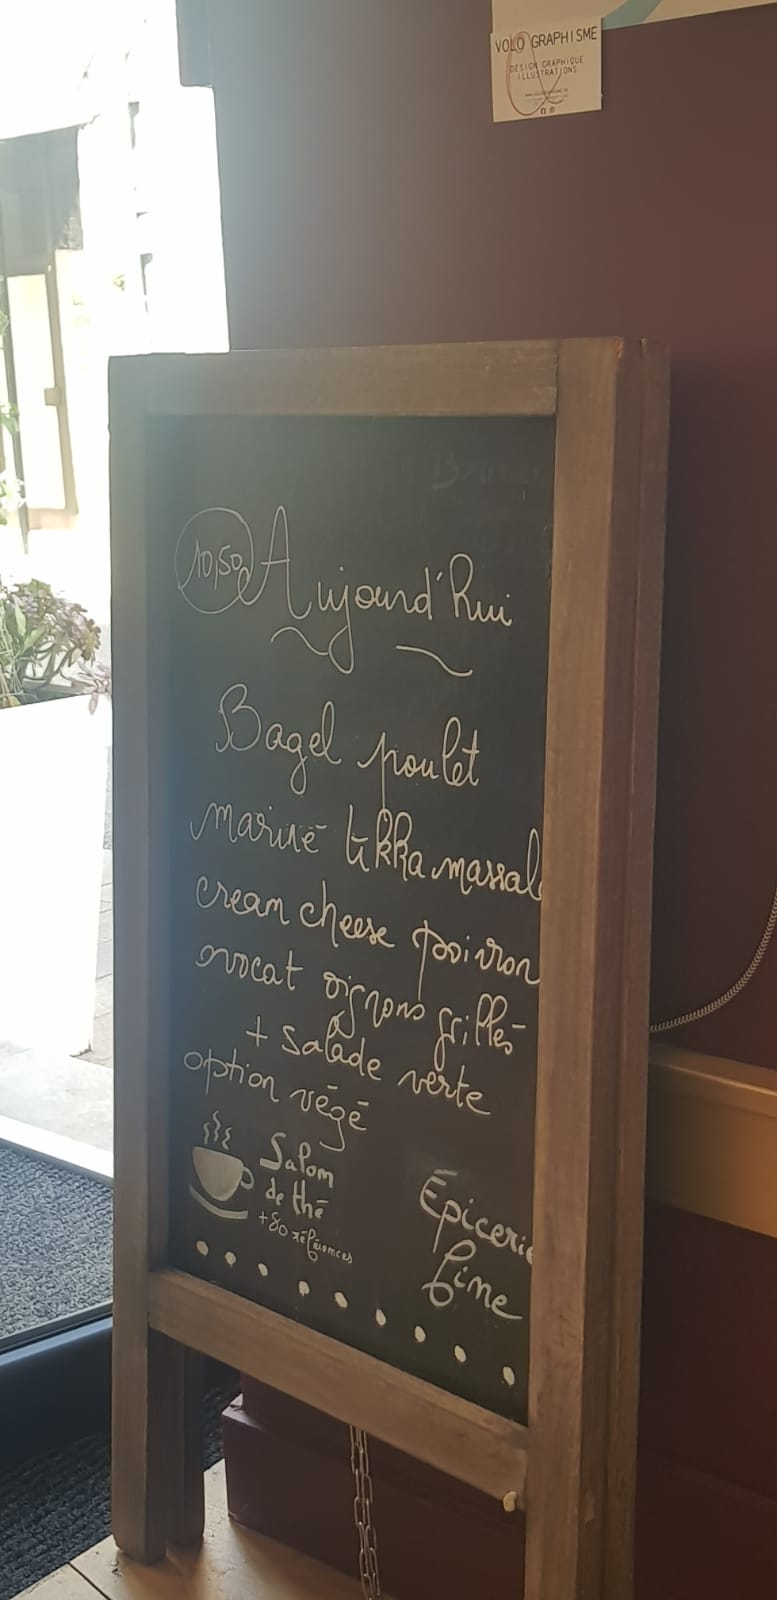 VOLO GRAPHISME
DESIGN GRAPHIQUE
ILLUSTRATIONS
10,50 Aujourd'hui
Bagel poulet
mariné tikka massal
cream cheese poivron
avocat oignons grillés
+ salade verte
option végé
Salom
de thé
+80 références
Épicerie
fine